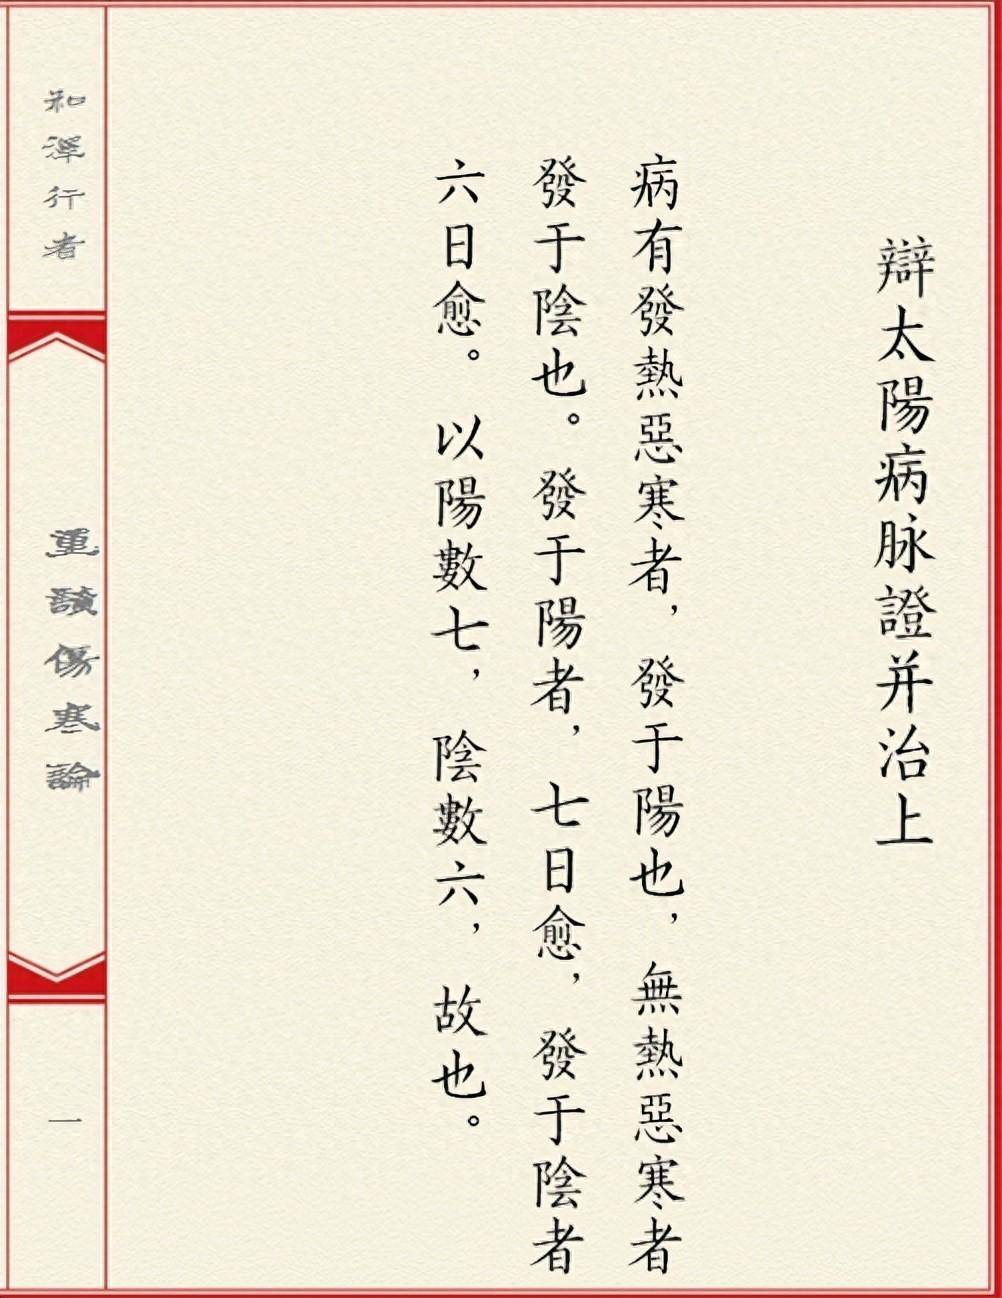 辯太陽病脉證并治上
病有發熱惡寒者，發于陽也，無熱惡寒者
發于陰也。發于陽者，七日愈，發于陰者
六日愈。以陽數七，陰數六，故也。
和澤行者
重讀傷寒論
一